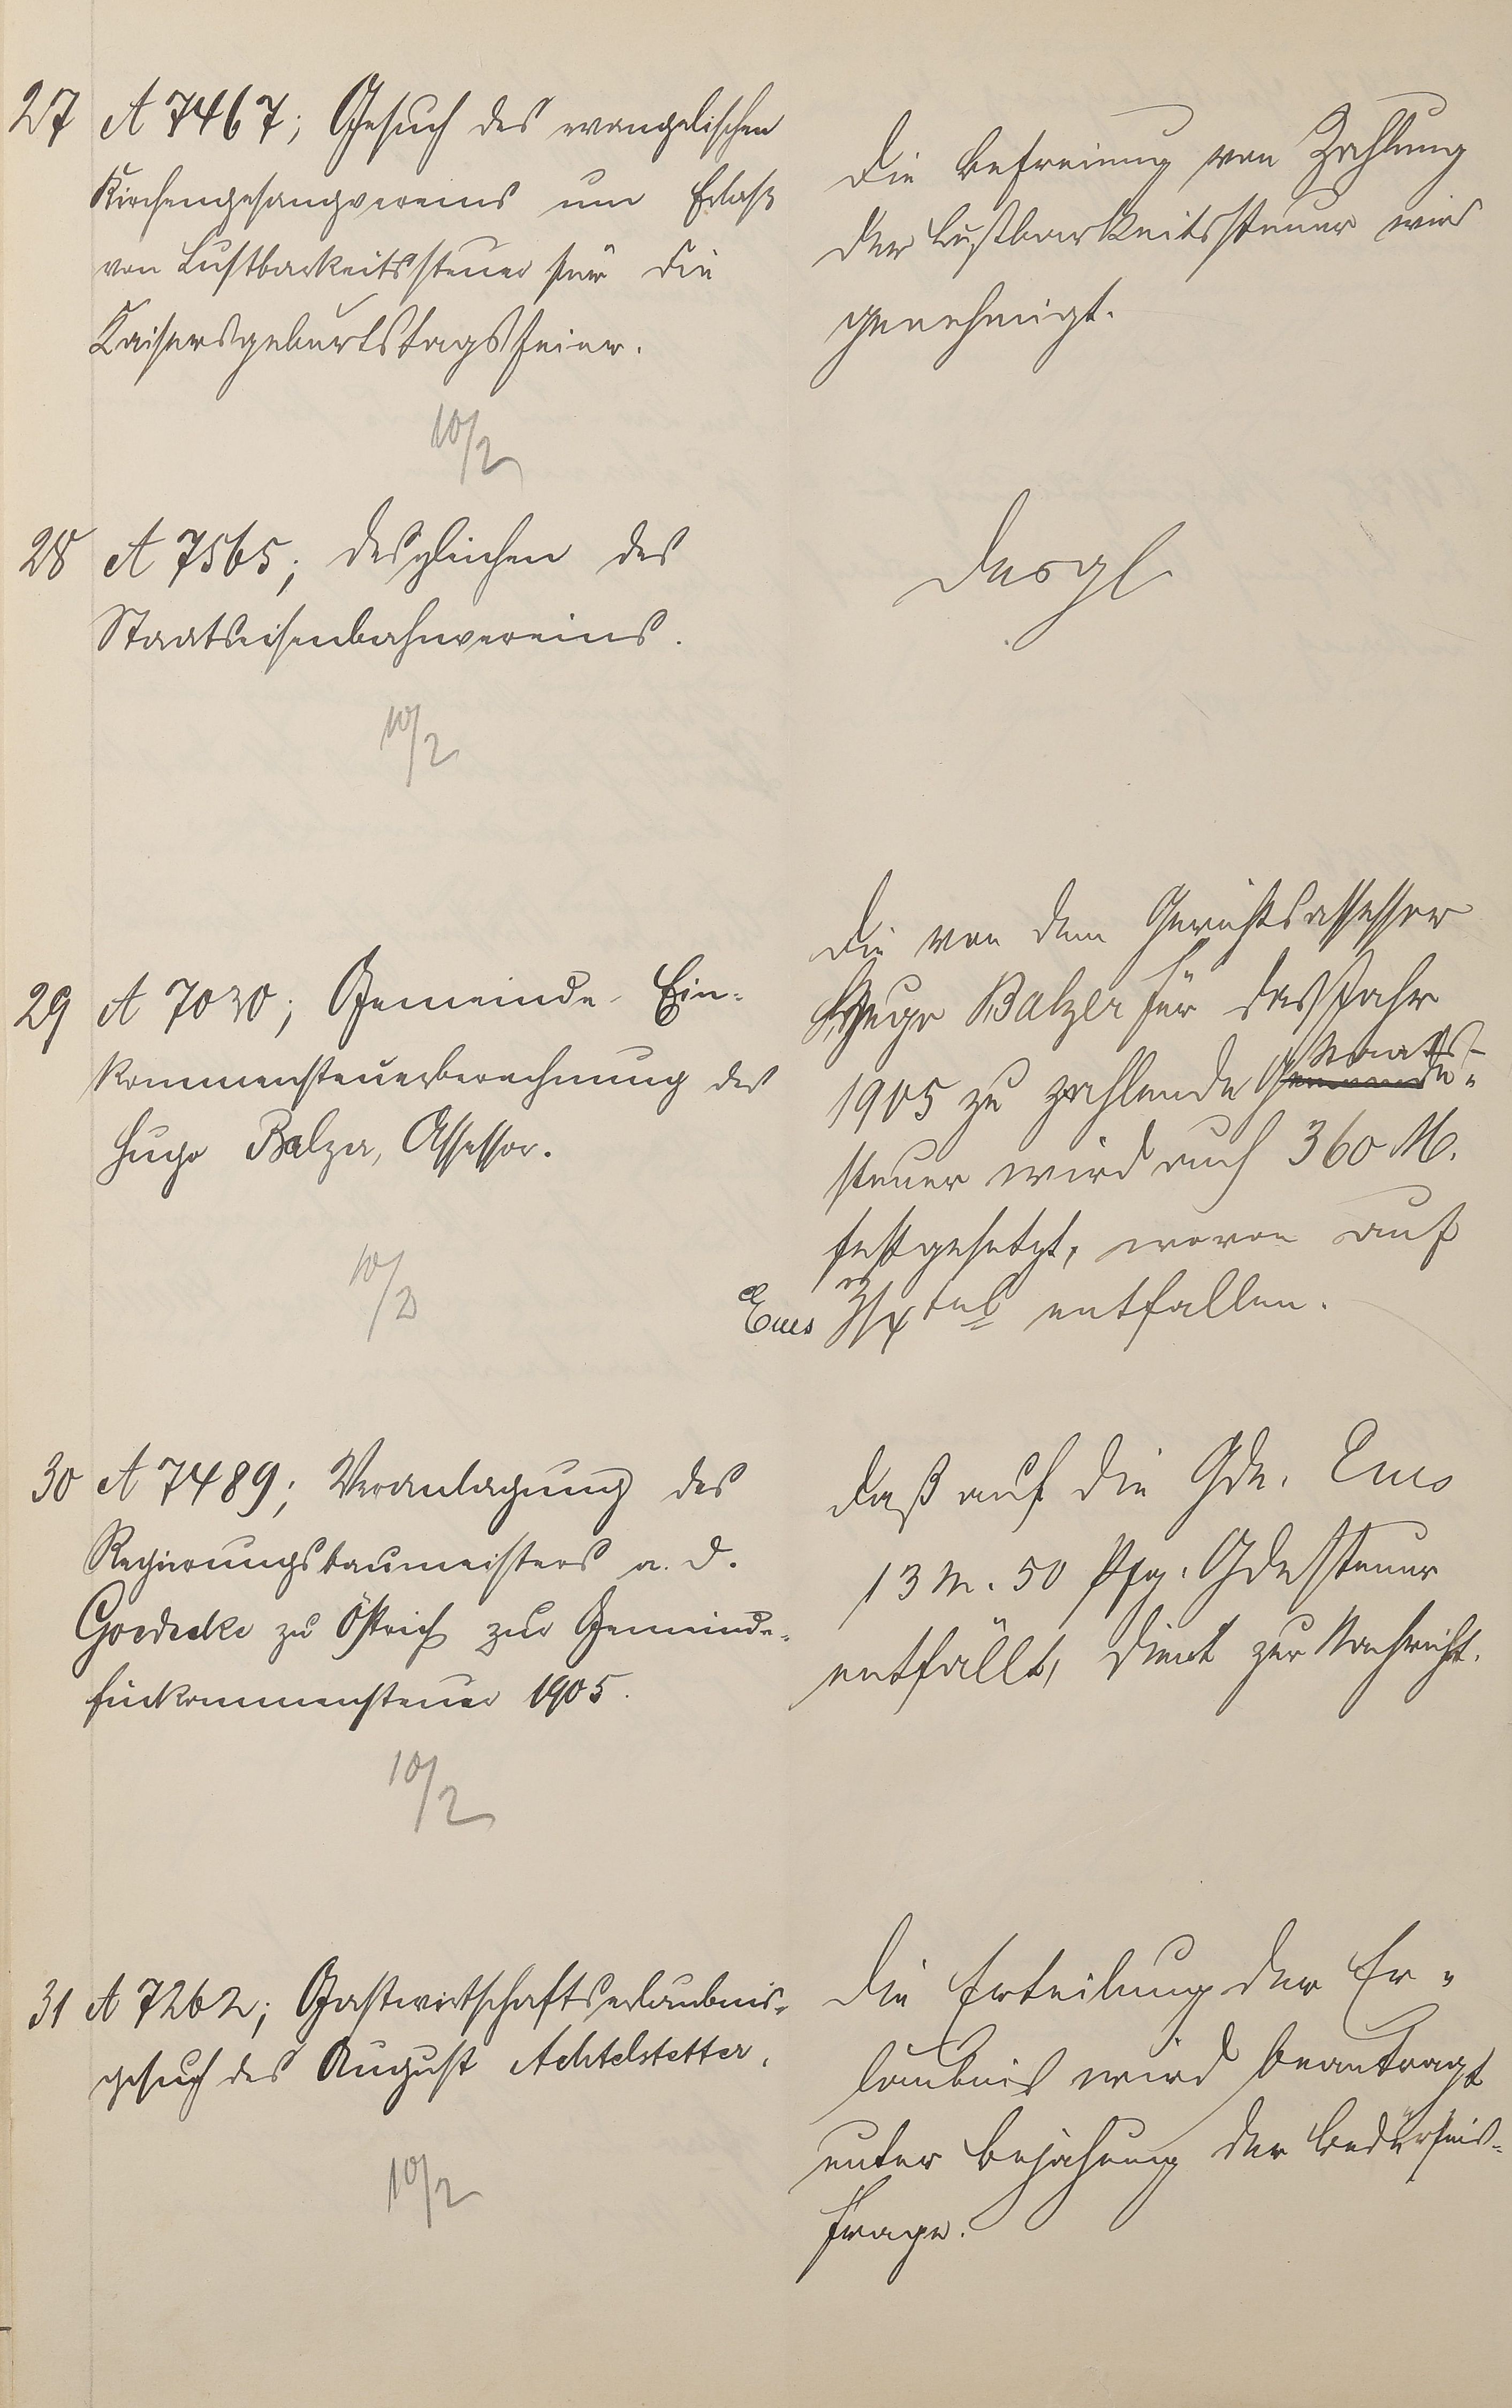 27 A 7467; Gesuch des evangelischen
Kirchengesangvereins um Erlaß
von Lustbarkeitssteuer für die
Kaisersgeburtstagsfeier.
10/2
Die Befreiung von Zahlung
der Lustbarkeitssteuer wird
genehmigt.
28 A 7565; desgleichen des
Staatseisenbahnvereins.
10/2
desgl
29 A 7030; Gemeinde-Ein-
kommensteuerberechnung des
Hugo Balzer, Assessor.
10/2
Die von dem Gerichtsassessor
Hugo Balzer für das Jahr
Staats-
1905 zu zahlende Gemeinde-
steuer wird auf 360 M.
festgesetzt, wovon auf
Ems 3/4 tel entfallen.
30 A 7489; Veranlagung des
Regierungsbaumeisters a. D.
Goedecke zu Östrich zur Gemeinde-
einkommensteuer 1905.
10/2
Daß auf die Gde. Ems
13 M. 50 Pfg. Gdesteuer
entfällt, dient zur Nachricht.
31 A 7262; Gastwirtschaftserlaubnis-
gesuch des August Achtelstetter.
10/2
Die Erteilung der Er-
laubnis wird beantragt
unter Bejahung der Bedürfnis-
frage.